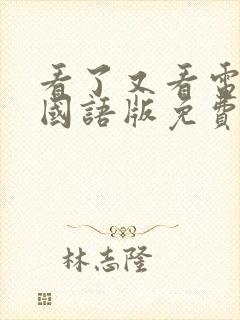 看了又看電
國語版免費
林志隆